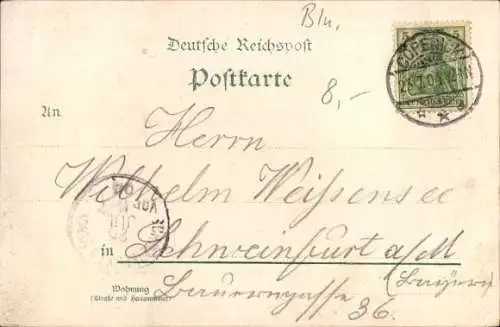 Bln.
Deutsche Reichspost
Postkarte
5 5
CÖPENICK
8,-
An
Herrn
Wilhelm Weissensee
in Schweinfurt a/M
(Bayern)
Wohnung
(Straße und Hausnummer)
Bauerngasse 36.